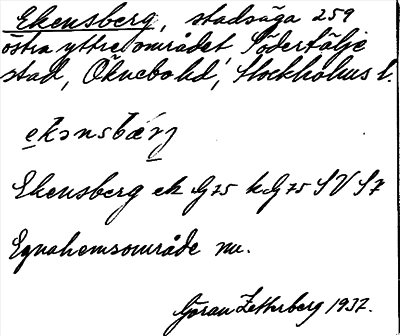 Ekensberg, stadsäga 259
östra yttre området Södertälje
stad, Öknebo hd, Stockholms l.
Ekensberg ek G 25 kG 75 SV S7
Egnahemsområde nu.
Göran Zetterberg 1937.